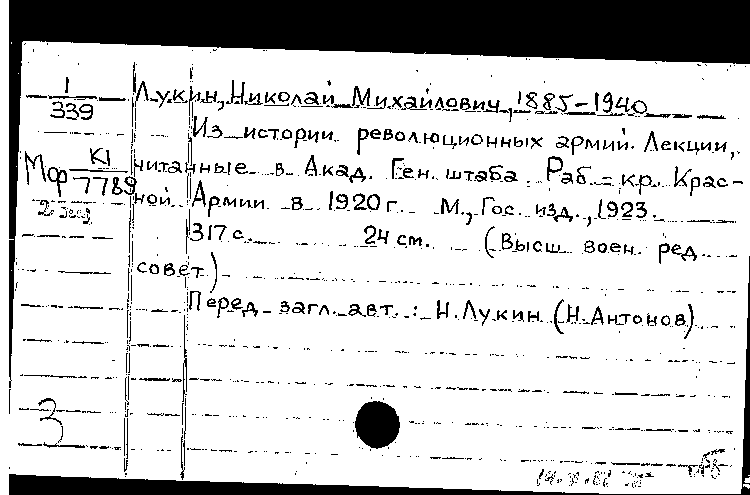 1
339
Лукин, Николай Михайлович, 1885-1940
Из истории революционных армий. Лекции,
Мф К1
7789
читанные в Акад. Ген. штаба Раб.-кр. Крас-
ной Армии в 1920 г. М., Гос. изд., 1923.
317 с. 24 см. (Высш. воен. ред.
совет)
Перед загл. авт.: Н. Лукин (Н. Антонов)
3